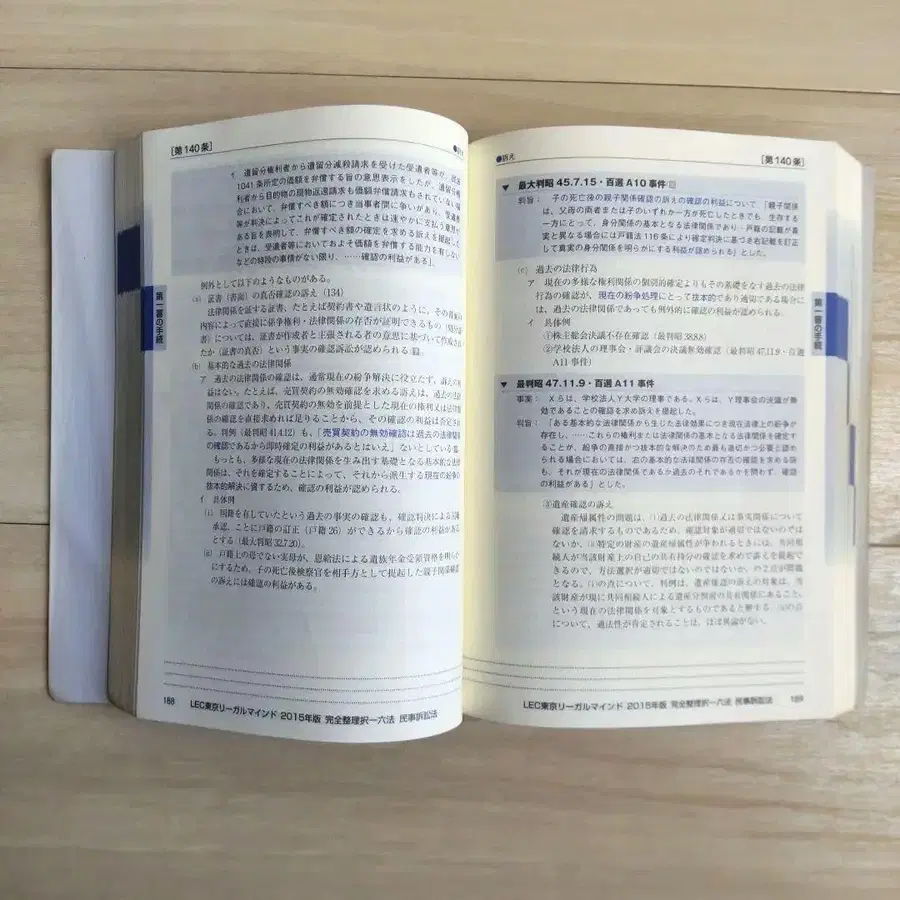 [第140条]
●訴え
イ 遺留分権利者から遺留分減殺請求を受けた受遺者等が、民法
1041条所定の価額を弁償する旨の意思表示をしたが、遺留分権
利者から目的物の現物返還請求も価額弁償請求もされていない場
合において、弁償すべき額につき当事者間に争いがあり、受遺者
等が判決によってこれが確定されたときは速やかに支払う意思が
ある旨を表明して、弁償すべき額の確定を求める訴えを提起した
ときは、受遺者等においておよそ価額を弁償する能力を有しない
などの特段の事情がない限り、……確認の利益がある」。
例外として以下のようなものがある。
(a) 証書（書面）の真否確認の訴え（134）
法律関係を証する証書、たとえば契約書や遺言状のように、その
内容によって直接に係争権利・法律関係の存否が証明できるもの
書）については、証書が作成者と主張される者の意思に基づいて作成され
たか（証書の真否）という事実の確認訴訟が認められる
(b) 基本的な過去の法律関係
ア 過去の法律関係の確認は、通常現在の紛争解決に役立たず、訴えの利
益はない。たとえば、売買契約の無効確認を求める訴えは、過去の法律
関係の確認であり、売買契約の無効を前提とした現在の権利又は法律
の確認を直接求めれば足りることから、その確認の利益は否定され
る。判例（最判昭41.4.12）も、「売買契約の無効確認は過去の法律関係
の確認であるから即時確定の利益があるとはいえ」ないとしている
もっとも、多様な現在の法律関係を生み出す基礎となる基本的な法律
関係は、それを確定することによって、それから派生する現在の紛争の
抜本的解決に資するため、確認の利益が認められる。
イ 具体例
(i) 国籍を有していたという過去の事実の確認も、確認判決による
承認、ことに戸籍の訂正（戸籍26）ができるから確認の利益がある
とする（最大判昭32.7.20）。
(ii) 戸籍上の母でない実母が、恩給法による遺族年金受領資格を明らか
にするため、子の死亡後検察官を相手方として提起した親子関係確認
の訴えには確認の利益がある。
188
LEC東京リーガルマインド 2015年版 完全整理択一六法 民事訴訟法
第一審の手続
●訴え
[第140条]
▼ 最大判昭45.7.15・百選A10事件
判旨： 子の死亡後の親子関係確認の訴えの確認の利益について「親子関係
は、父母の両者または子のいずれか一方が死亡したときでも、生存する
一方にとって、身分関係の基本となる法律関係であり…戸籍の記載が真
実と異なる場合には戸籍法116条により確定判決に基づき右記載を訂正
して真実の身分関係を明らかにする利益が認められる」とした。
(c) 過去の法律行為
ア 現在の多様な権利関係の個別的確定よりもその基礎をなす過去の法律
行為の確認が、現在の紛争処理にとって抜本的であり適切である場合に
は、過去の法律関係であっても例外的に確認の利益が認められる。
イ 具体例
①株主総会決議不存在確認（最判昭38.8.8）
②学校法人の理事会・評議会の決議無効確認（最判昭47.11.9・百選
A11事件）
▼ 最判昭47.11.9・百選A11事件
事実： Xらは、学校法人Y大学の理事である。Xらは、Y理事会の決議が無
効であることの確認を求め訴えを提起した。
判旨： 「ある基本的な法律関係から生じた法律効果につき現在法律上の紛争が
存在し、……これらの権利または法律関係の基本となる法律関係を確定する
ことが、紛争の直接かつ抜本的な解決のため最も適切かつ必要と認め
られる場合においては、右の基本的な法律関係の存否の確認を求める訴
も、それが現在の法律関係であるか過去のそれであるかを問わず、確認
の利益がある」とした。
③遺産確認の訴え
遺産帰属性の問題は、(i)過去の法律関係又は事実関係について
確認を請求するものであるため、確認対象が適切ではないのでは
ないか、(ii)特定の財産の遺産帰属性が争われるときには、共同相
続人が当該財産上の自己の共有持分の確認を求めて訴えを提起で
きるので、方法選択が適切ではないのではないか、の2点が問題
となる。(i)の点について、判例は、遺産確認の訴えの対象は、当
該財産が現に共同相続人による遺産分割前の共有関係にあること、
という現在の法律関係を対象とするものであると解する。(ii)の点
について、適法性が肯定されることは、ほぼ異論がない。
第一審の手続
LEC東京リーガルマインド 2015年版 完全整理択一六法 民事訴訟法
189